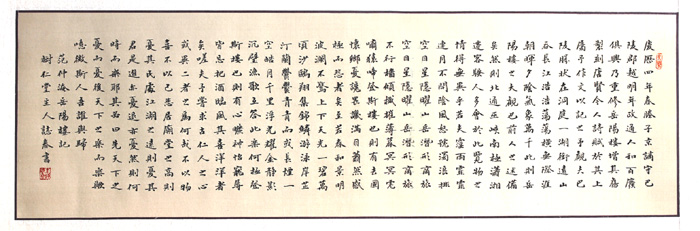 慶曆四年春滕子京謫守巴
陵郡越明年政通人和百廢
俱興乃重修岳陽樓增其舊
制刻唐賢今人詩賦於其上
屬予作文以記之予觀夫巴
陵勝狀在洞庭一湖銜遠山
吞長江浩浩蕩蕩橫無際涯
朝暉夕陰氣象萬千此則岳
陽樓之大觀也前人之述備
矣然則北通巫峽南極瀟湘
遷客騷人多會於此覽物之
情得無異乎若夫霪雨霏霏
連月不開陰風怒號濁浪排
空日星隱曜山岳潛形商旅
空日星隱曜山岳潛形商旅
不行檣傾楫摧薄暮冥冥虎
嘯猿啼登斯樓也則有去國
懷鄉憂讒畏譏滿目蕭然感
極而悲者矣至若春和景明
波瀾不驚上下天光一碧萬
頃沙鷗翔集錦鱗游泳岸芷
汀蘭鬱鬱青青而或長煙一
空皓月千里浮光耀金靜影
沉璧漁歌互答此樂何極登
斯樓也則有心曠神怡寵辱
皆忘把酒臨風其喜洋洋者
矣嗟夫予嘗求古仁人之心
或異二者之為何哉不以物
喜不以己悲居廟堂之高則
憂其民處江湖之遠則憂其
君是進亦憂退亦憂然則何
時而樂耶其必曰先天下之
憂而憂後天下之樂而樂歟
噫微斯人吾誰與歸
范仲淹岳陽樓記
樹仁堂主人誌春書